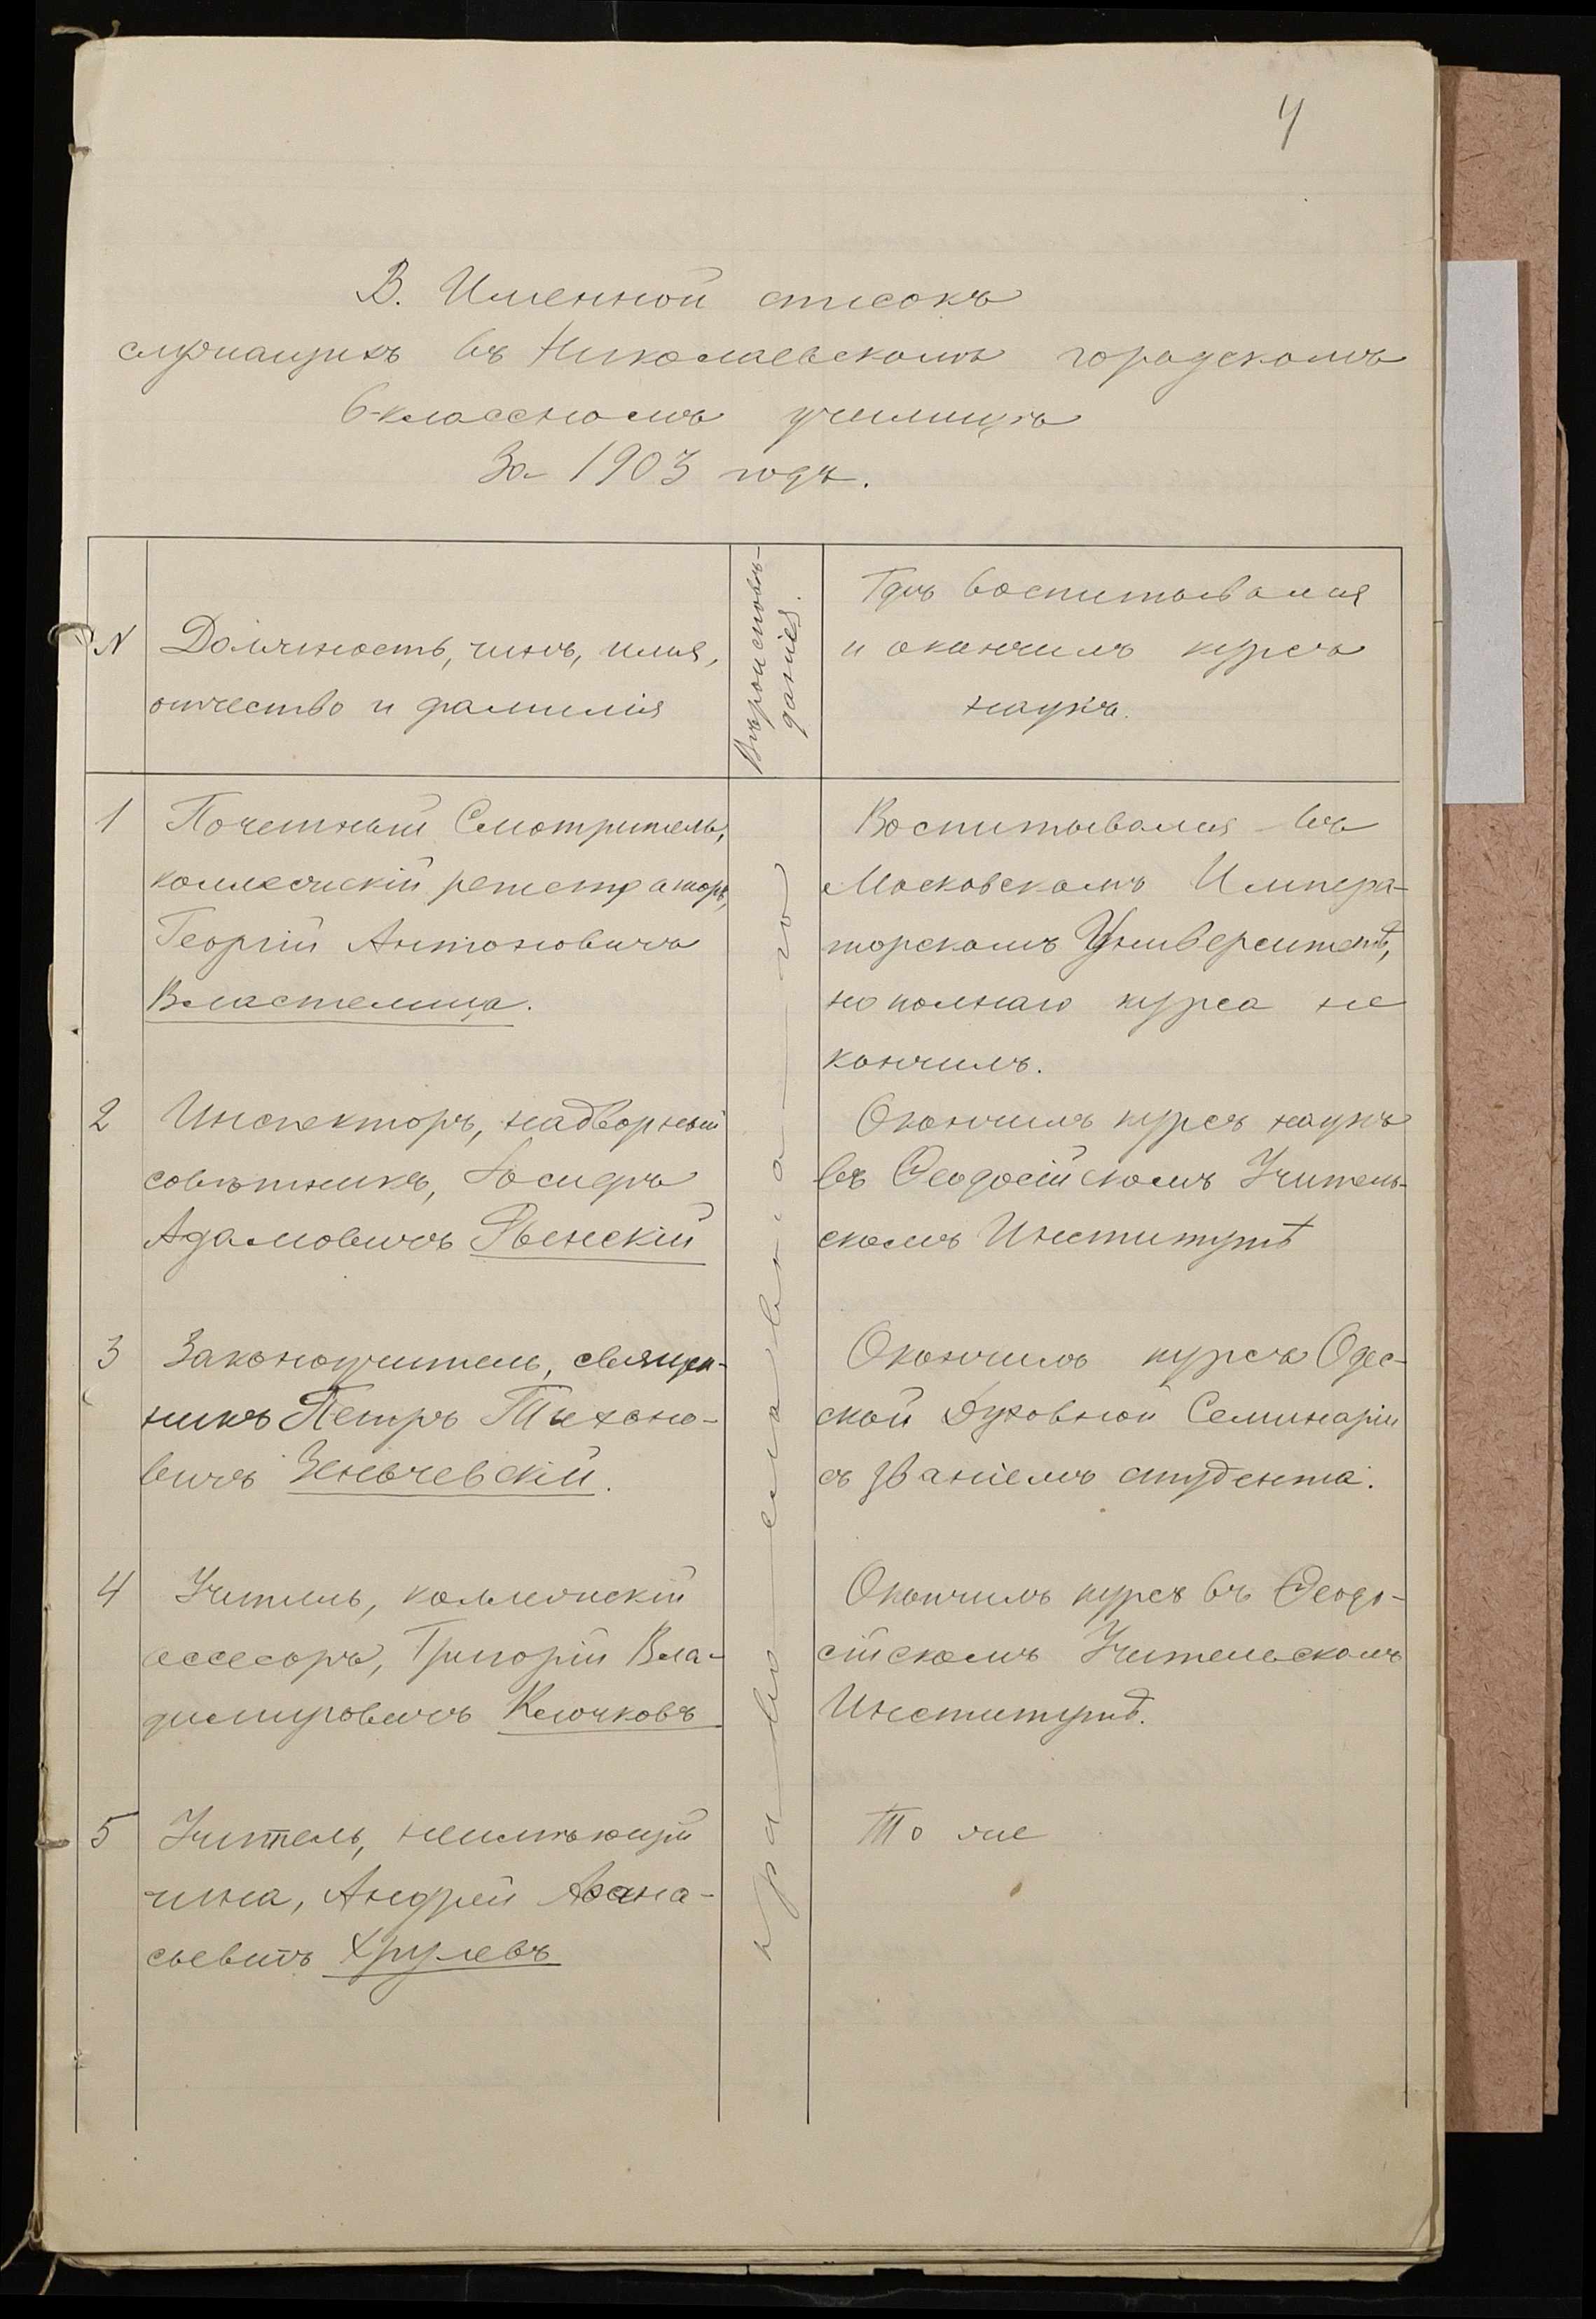 4
В. Именной списокъ
служащихъ въ Николаевскомъ городскомъ
6-классномъ училищѣ
За 1903 годъ.
N
Должность, чинъ, имя,
отчество и фамилія
Вѣроисповѣ-
данія.
Гдѣ воспитывался
и окончилъ курсъ
наукъ.
1
Почетный Смотритель,
коллежскій регистраторъ,
Георгій Антоновичъ
Властелица.
Воспитывался въ
Московскомъ Импера-
торскомъ Университетѣ,
но полнаго курса не
кончилъ.
2
Инспекторъ, надворный
совѣтникъ, Іосифъ
Адамовичъ
Окончилъ курсъ наукъ
въ Ѳеодосійскомъ Учитель-
скомъ Институтѣ
3
Законоучитель, священ-
никъ Петръ Тихоно-
вичъ Зеньчевскій.
Окончилъ курсъ Одес-
ской Духовной Семинаріи
съ званіемъ студента.
4
Учитель, коллежскій
ассесоръ, Григорій Вла-
диміровичъ Клочковъ
Окончилъ курсъ въ Ѳеодо-
сійскомъ Учительскомъ
Институтѣ.
5
Учитель, неимѣющій
чина, Андрей Аѳана-
сьевичъ Хрулевъ
То же
православнаго